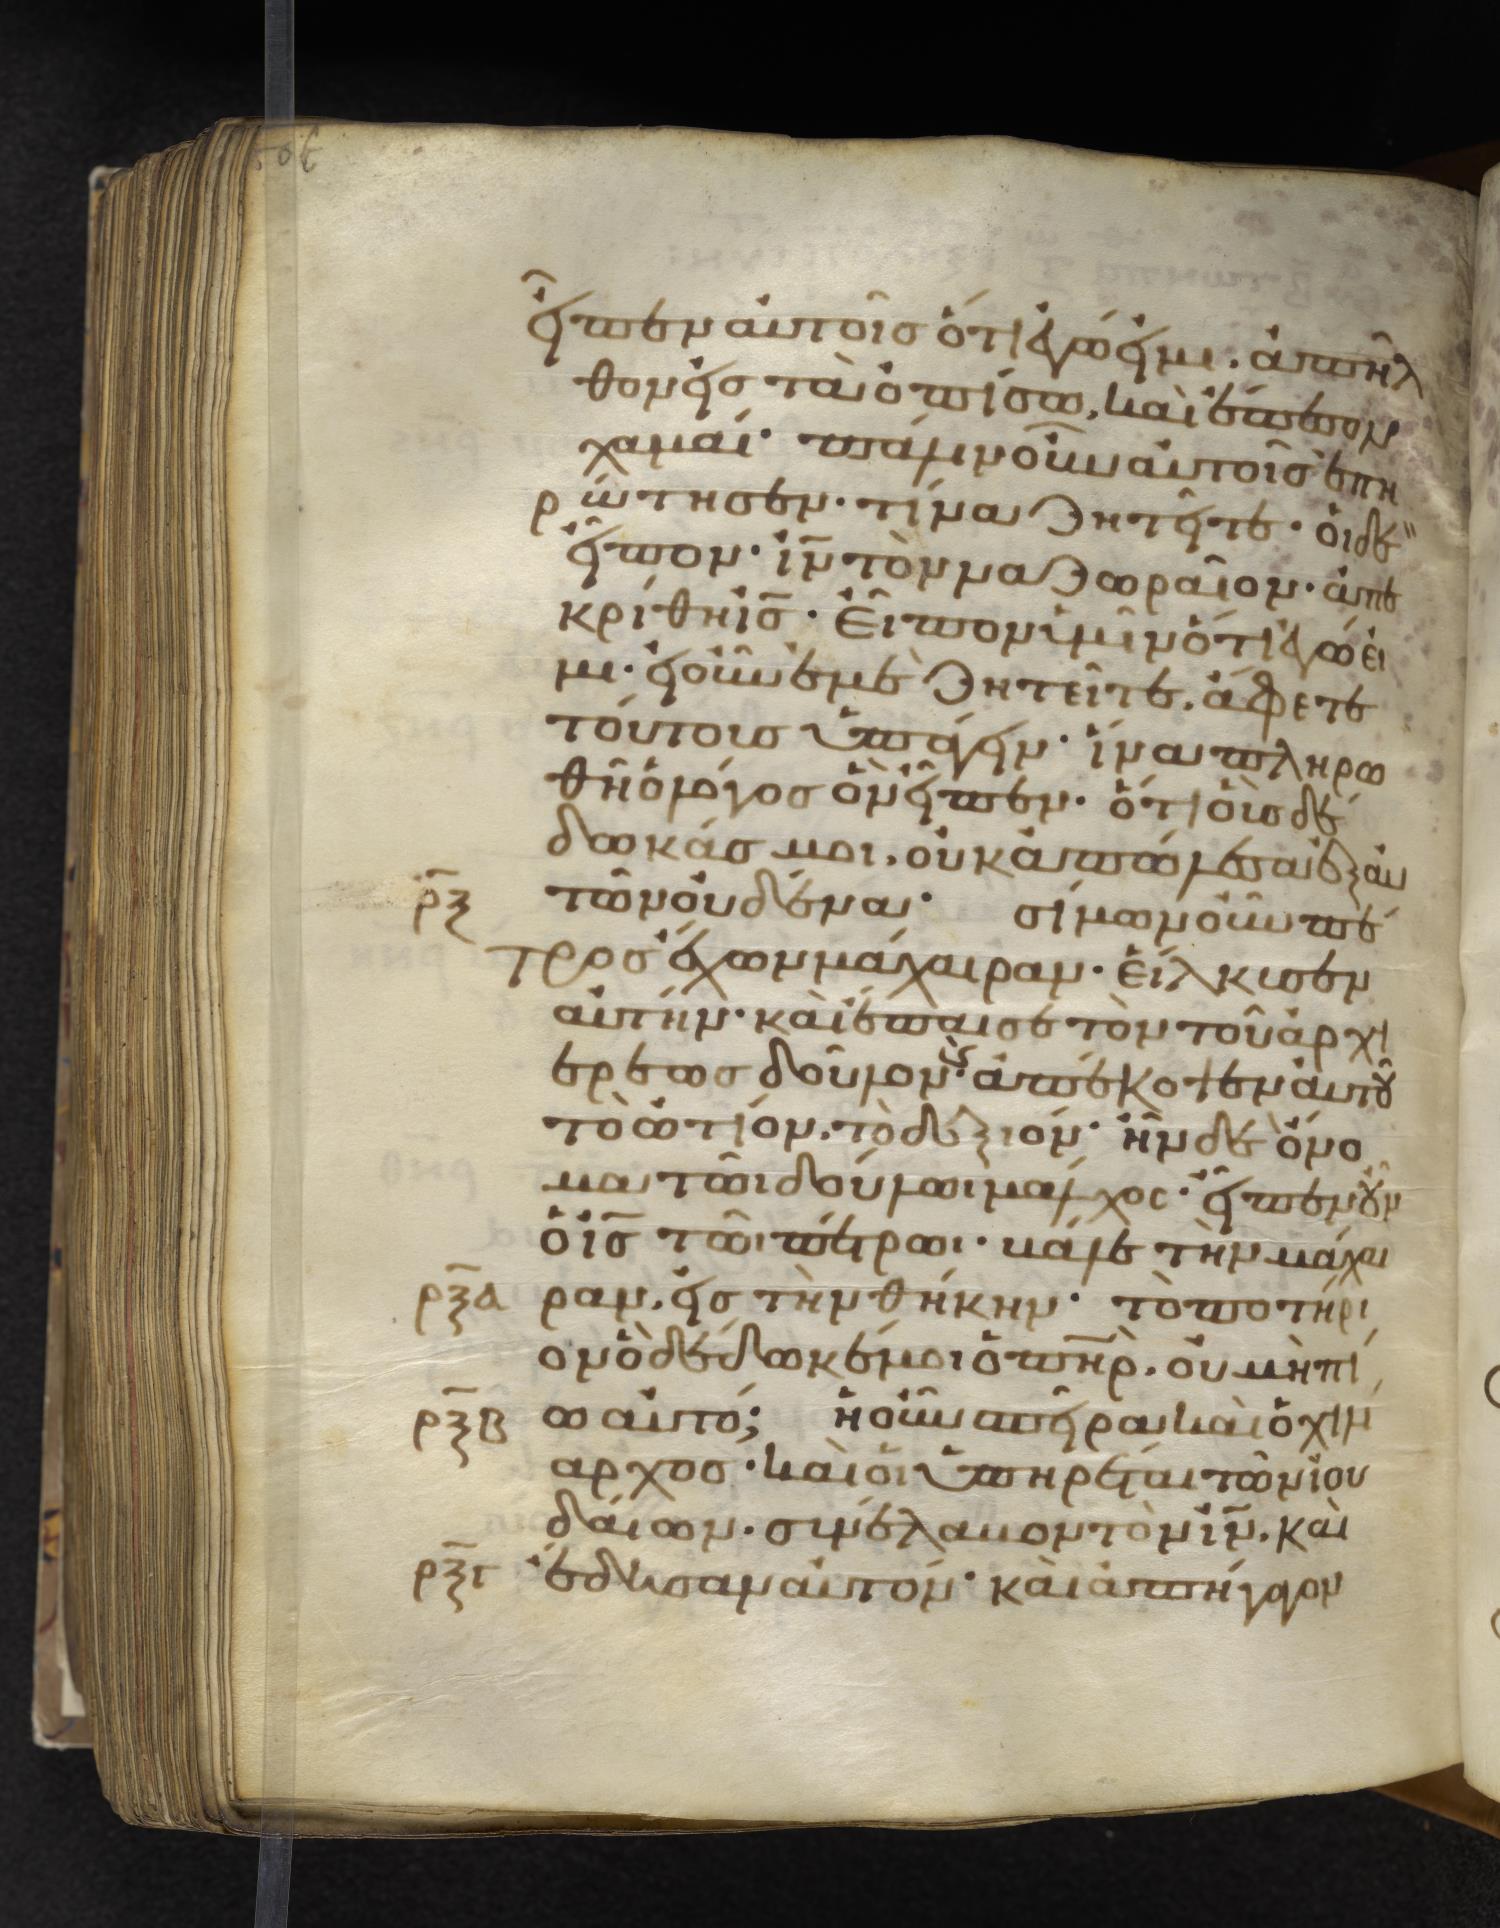 εἶπεν αὐτοῖσ ὅτι ἐγώ εἰμι· ἀπῆλ
θον εἰσ τὰ ὀπίσω, καὶ ἔπεσον
χαμαί· πάλιν οὖν αὐτοῖσ ἐπη
ρώτησεν· τίνα ζητεῖτε· οἱ δὲ
εἶπον· ἰν̅ τὸν ναζωραῖον· ἀπε
κρίθη ἰσ̅· εἶπον ὑμῖν ὅτι ἐγώ εἰ
μι· εἰ οὖν ἐμὲ ζητεῖτε. ἄφετε
τούτουσ ὑπάγειν· ἵνα πληρω
θῆ ὁ λόγοσ ὃν εἶπεν· ὅτι οὓσ δέ
δωκάσ μοι, οὐκ ἀπώλεσα ἐξ αὐ
ρξ̅ τῶν οὐδένα· σίμων οὖν πέ
τροσ ἔχων μάχαιραν· εἵλκυσεν
αὐτήν· καὶ ἔπαισε τὸν τοῦ ἀρχι
ερεωσ δοῦλον· κ(αὶ) ἀπέκοψεν αὐτοῦ
τὸ ὠτίον. τὸ δεξιόν· ἦν δὲ ὄνο
μα τῶι δούλωι μάλχος· εἶπεν οὖν
ὁ ἰσ̅ τῶι πέτρωι· βάλε τὴν μάχαι
ρξ̅α ραν. εἰσ τὴν θήκην· τὸ ποτήρι
ον ὃ δέδωκέ μοι ὁ πη̅ρ. οὐ μὴ πί
ρξ̅β ω αὐτό; ἡ οὖν σπεῖρα καὶ ὁ χιλί
αρχοσ· καὶ οἱ ὑπηρέται τῶν ἰου
δαίων· συνέλαβον τὸν ἰν̅. καὶ
ρξ̅γ ἔδησαν αὐτόν· καὶ ἀπήγαγον